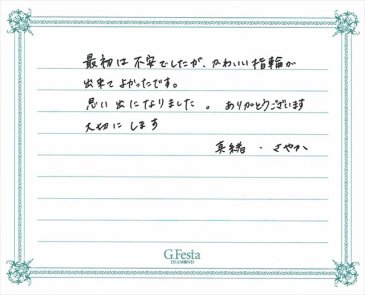 最初は不安でしたが、かわいい指輪が
出来てよかったです。
思い出になりました。ありがとうございます
大切にします
真緒・さやか
G.Festa
DIAMOND